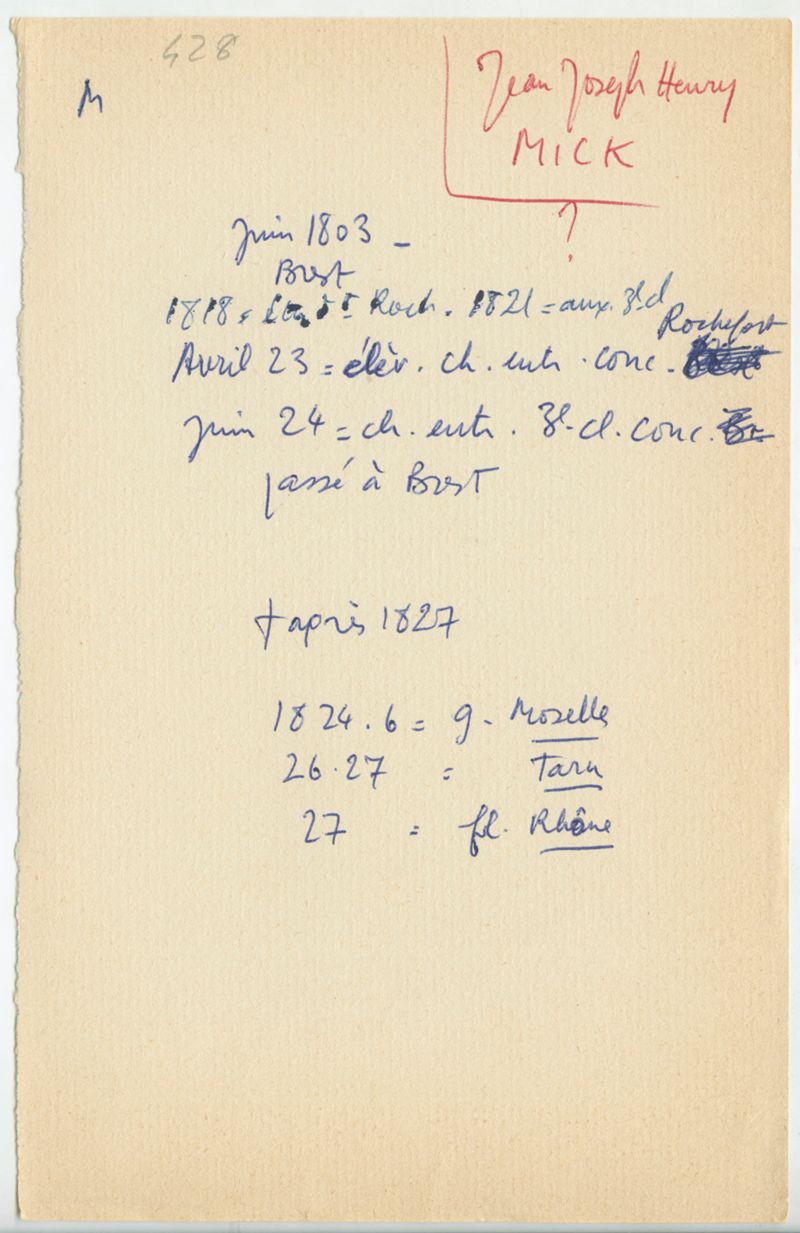 428
M
Jean Joseph Henry
MICK
?
Juin 1803 -
Brest
1818 = Roch. 1821 = aux. 3e cl
Rochefort
Avril 23 = élèv. ch. entr. conc.
Juin 24 = ch. entr. 3e cl. conc.
passé à Brest
† après 1827
1824.6 = g. Moselle
26.27 = Tarn
27 = fl. Rhône